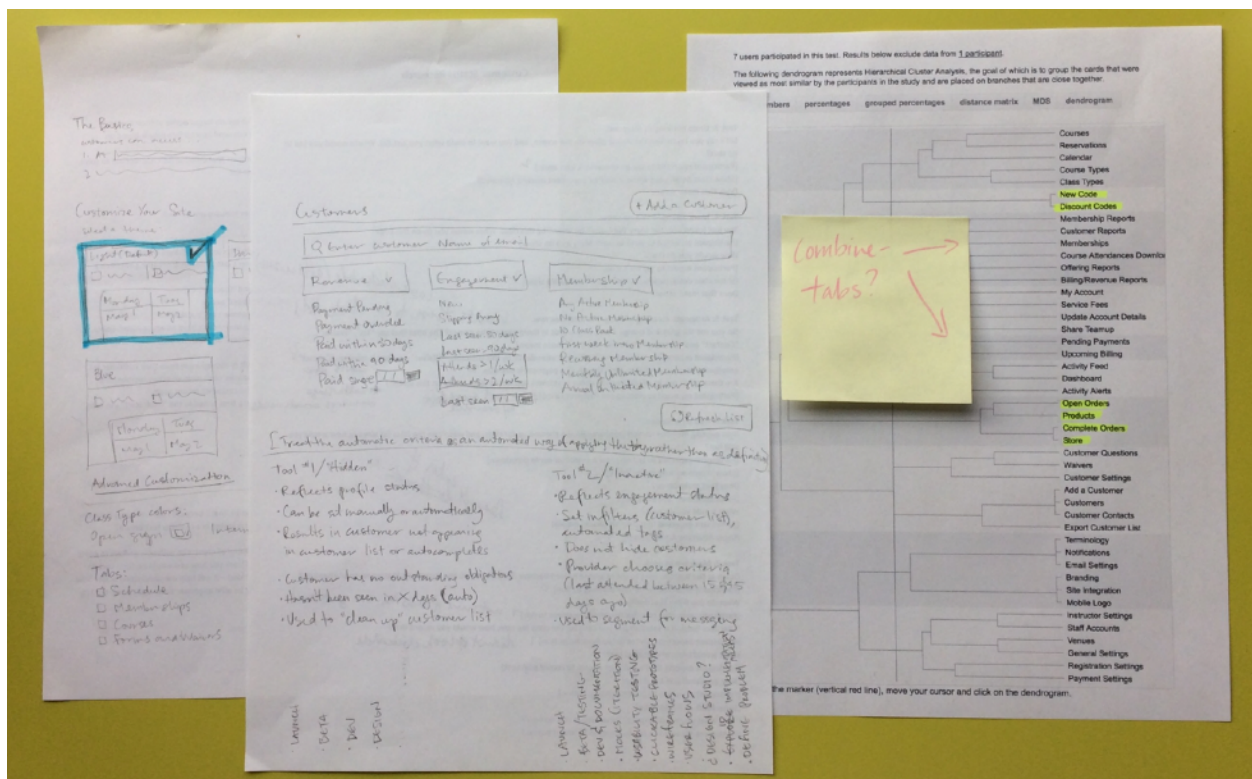 The Basics
Customize Your Site
Light (Default)
Monday Tues
May 1 May 2
Blue
Monday Tues
May 1 May 2
Advanced Customization
Class Type colors:
Open gym
Tabs:
Schedule
Memberships
Courses
Forms and Waivers
Customers
+ Add a Customer
Q Enter customer Name or email
Revenue Engagement Membership
Payment Pending
Payment Overdue
Paid within 30 days
Paid within 90 days
Paid since
New
Slipping Away
Last seen 30 days
Last seen
Attends >1/wk
Attends >2/wk
Last seen
Any Active Membership
No Active Membership
10 Class Pack
Recurring Membership
Monthly Unlimited Membership
Annual Unlimited Membership
Refresh List
[Treat the automatic criteria as an automated way of applying the tag rather than as defin
Tool #1/"Hidden"
• Reflects profile status
• Can be set manually or automatically
• Results in customer not appearing
in customer list or autocompletes
• Customer has no outstanding obligations
• Hasn't been seen in X days (auto)
• Used to "clean up" customer list
Tool #2/"Inactive"
• Reflects engagement status
• Set in filters (customer list),
automated tags
• Does not hide customers
• Provider choosing criteria
(last attended between 15 & 45
days ago)
• Used to segment for messaging
• LAUNCH
• BETA
• DEV
• DESIGN
• LAUNCH
• BETA/TESTING
• DEV & DOCUMENTATION
• MOCKS (ITERATION)
• USABILITY TESTING
• CLICKABLE PROTOTYPES
• WIREFRAMES
• USER FLOWS
¿ DESIGN STUDIO?
• DEFINE PROBLEM
Combine
tabs?
7 users participated in this test. Results below exclude data from 1 participant.
The following dendrogram represents Hierarchical Cluster Analysis, the goal of which is to group the cards that were
viewed as most similar by the participants in the study and are placed on branches that are close together.
mbers percentages grouped percentages distance matrix MDS dendrogram
Courses
Reservations
Calendar
Course Types
Class Types
New Code
Discount Codes
Membership Reports
Customer Reports
Memberships
Course Attendences Downloa
Offering Reports
Billing/Revenue Reports
My Account
Service Fees
Update Account Details
Share Teamup
Pending Payments
Upcoming Billing
Activity Feed
Dashboard
Activity Alerts
Open Orders
Products
Complete Orders
Store
Customer Questions
Waivers
Customer Settings
Add a Customer
Customers
Customer Contacts
Export Customer List
Terminology
Notifications
Email Settings
Branding
Site Integration
Mobile Logo
Instructor Settings
Staff Accounts
Venues
General Settings
Registration Settings
Payment Settings
the marker (vertical red line), move your cursor and click on the dendrogram.